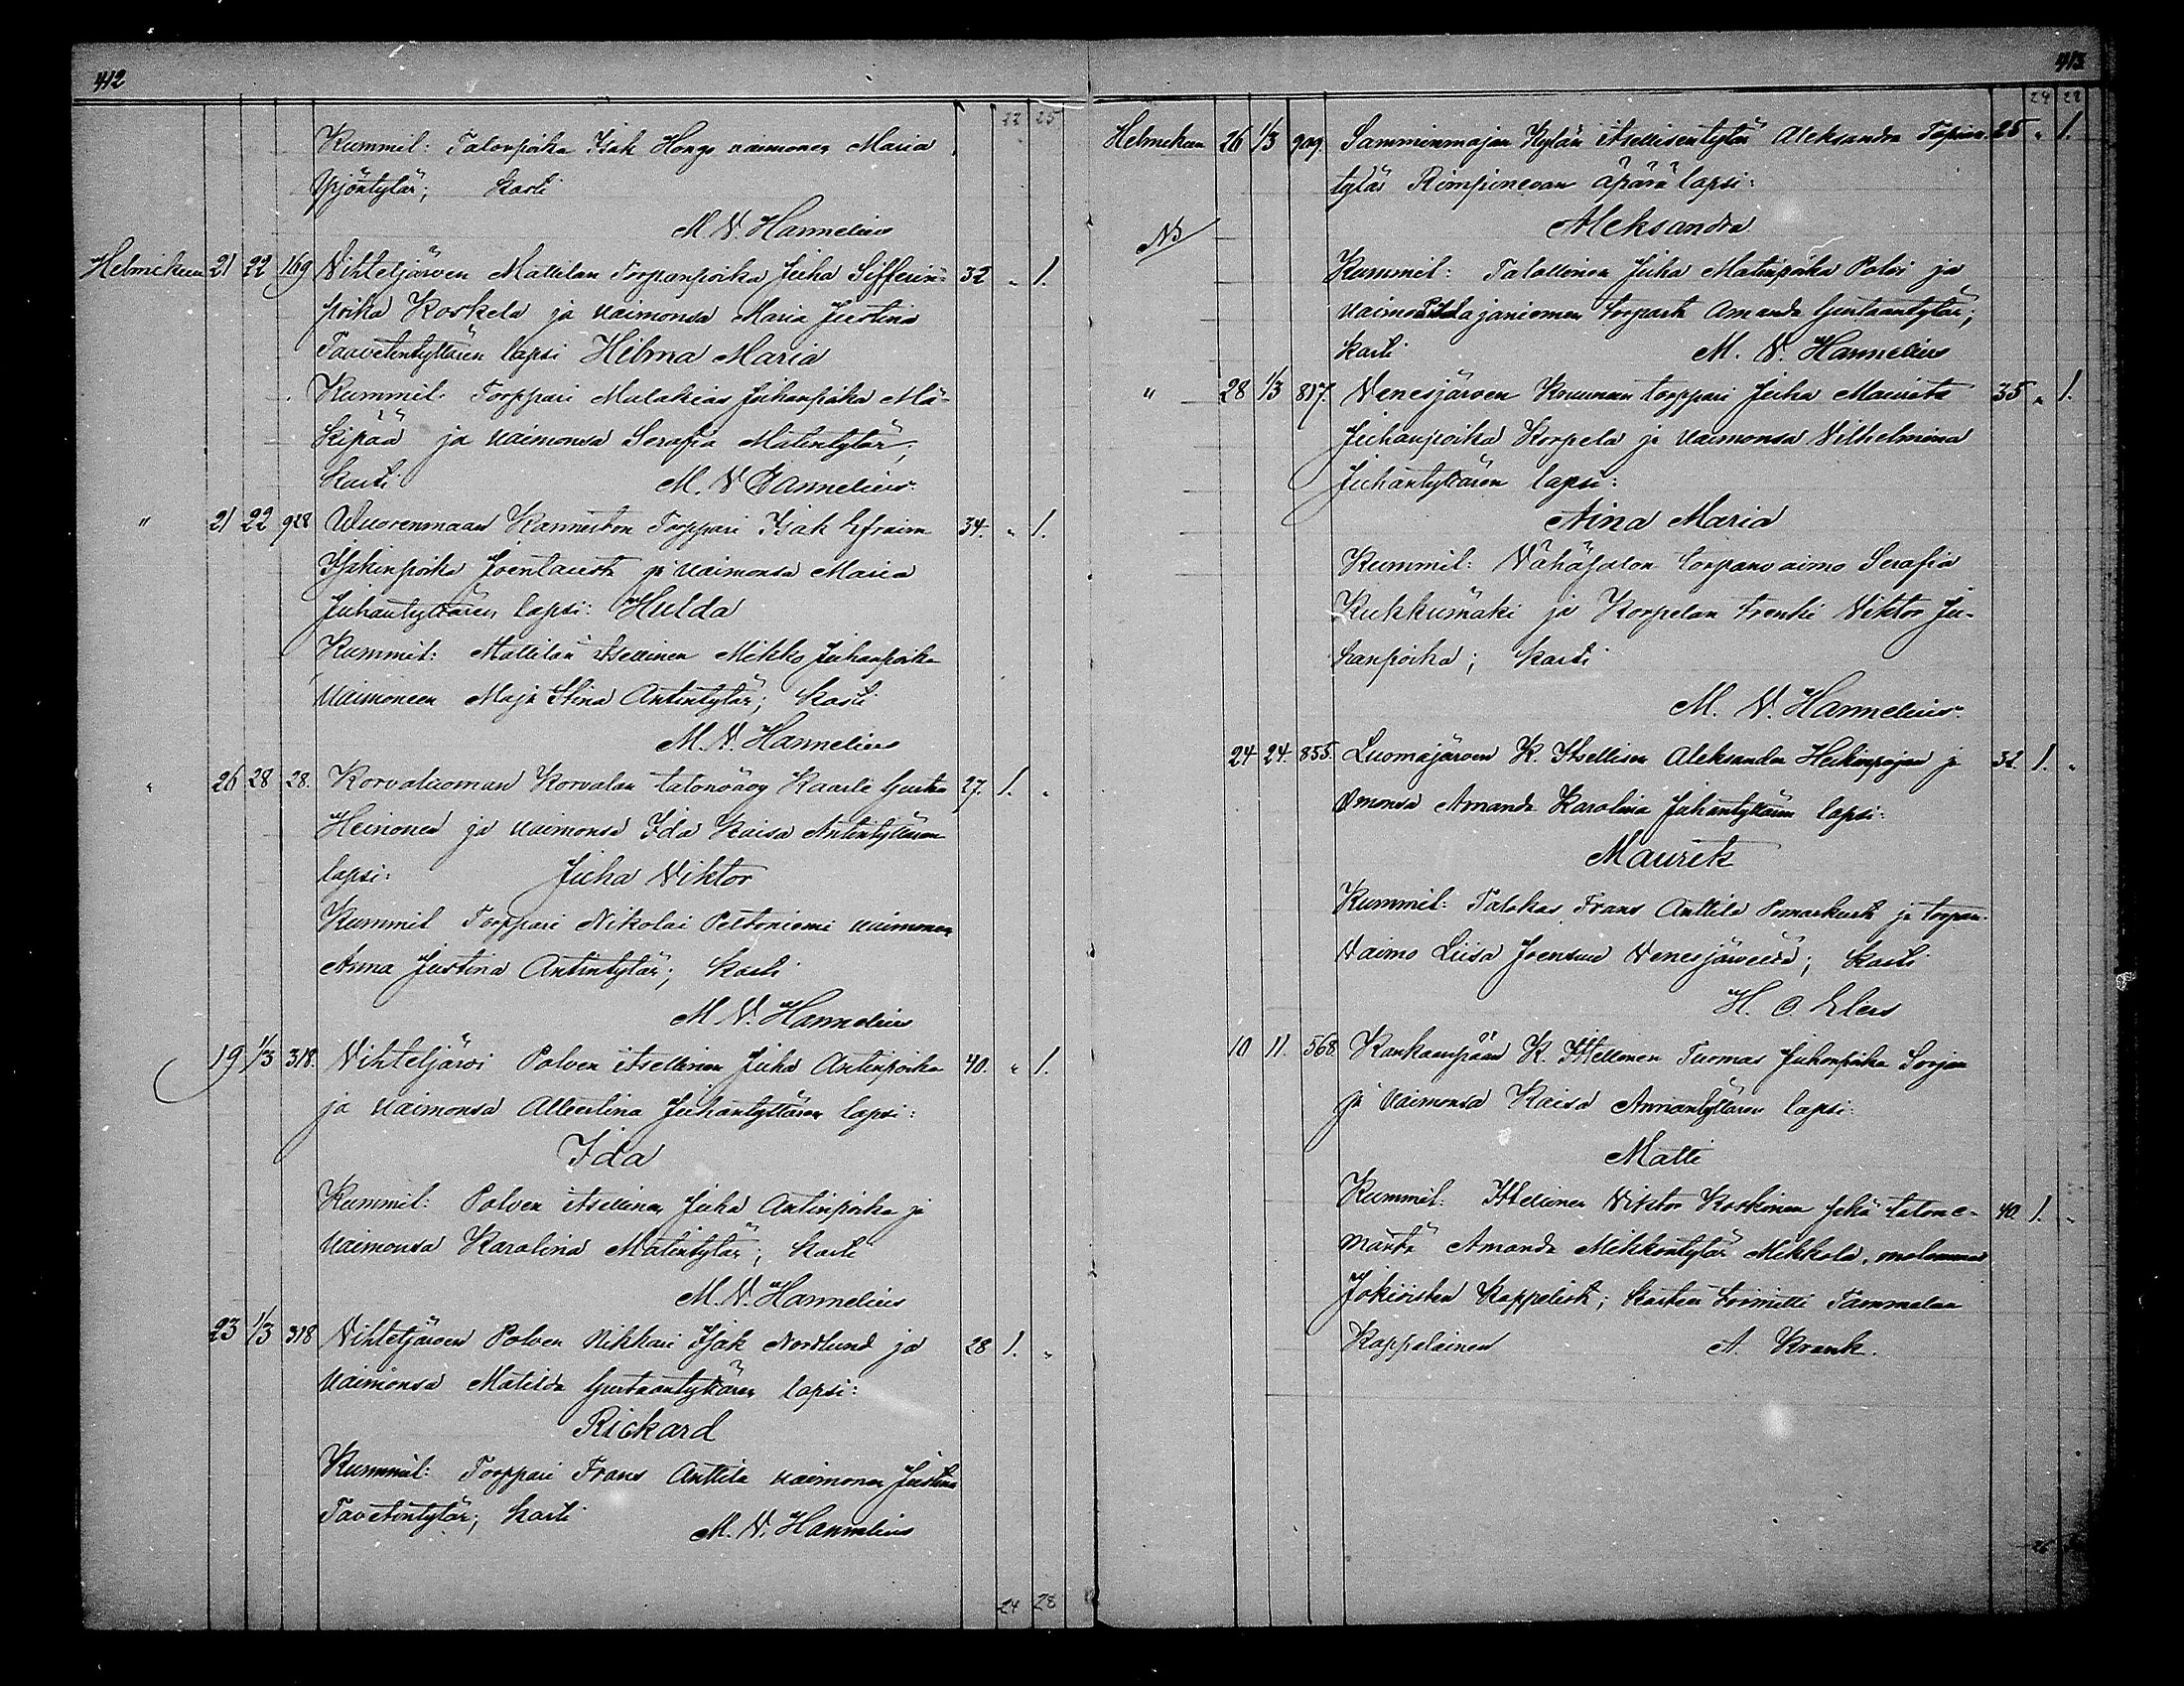 412
22 25
Kummit: Talonpoika Isak Hongo vaimonen Maria
Yrjöntytär; Kasti
M. V. Hannelius
Helmikuu 21 22 169 Vihteljärven Mattilan Torpanpoika Juha Sifferin- 32 " 1.
poika Koskela ja vaimonsa Maria Justina
Taavetintyttären lapsi Hilma Maria
Kummit: Torppari Malakias Juhanpoika Mä-
kipää ja vaimonsa Serafia Matintytär;
Kasti M. V. Hannelius
" 21 22 928 Wuorenmaan Kanniston Torppari Isak Efraim 34. " 1.
Isakinpoika Joentausta ja vaimonsa Maria
Juhantyttären lapsi: Hulda
Kummit: Mattilan Itsellinen Mikko Juhanpoika
vaimoneen Maja Stina Antintytär; Kasti
M. V. Hannelius
" 26 28 28. Korvaluoman Korvalan talonvävy Kaarle Kusta 27. 1. "
Heinonen ja vaimonsa Ida Kaisa Antintyttären
lapsi: Juha Viktor
Kummit Torppari Nikolai Peltoniemi vaimonen
Anna Justina Antintytär; Kasti
M. V. Hannelius
19 1/3 318. Vihteljärvi Polven itsellinen Juha Antinpoika 40. " 1.
ja vaimonsa Albertina Juhantyttären lapsi:
Ida
Kummit: Polven itsellinen Juha Antinpoika ja
vaimonsa Karolina Matintytär; Kasti
M. V. Hannelius
23 1/3 318 Vihteljärven Polven Nikkari Isak Nordlund ja 28 1. "
vaimonsa Matilda Kustaantyttären lapsi:
Rickard
Kummit: Torppari Frans Anttila vaimonen Justina
Tavetintytär; Kasti M. V. Hannelius
24 28
413
24 28
Helmikuu 26 1/3 909. Samminmajan Kylän itsellisentytär Aleksandra Tapion- 25 " 1.
tytär Rimpinevan äpärä lapsi:
Aleksandra
NB
Kummit: Talollinen Juha Matinpoika Polvi ja
vaimo Pitkäjaniemen torpasta Amanda Kustaantytär;
Kasti M. V. Hannelius
" 28 1/3 817. Venesjärven Kouman torppari Juha Maurits 35 " 1.
Juhanpoika Korpela ja vaimonsa Vilhelmina
Juhantyttären lapsi:
Aina Maria
Kummit: Vähäsalon torpanvaimo Serafia
Kukkumäki ja Korpelan trenki Viktor Ju-
hanpoika; Kasti
M. V. Hannelius.
24 24. 855. Luomajärven K. Itsellisen Aleksander Heikinpojan ja 32. 1. "
vmonsa Amanda Karolina Juhantyttären lapsi:
Maurits
Kummit: Talokas Frans Anttila Pomarkusta ja torpan-
vaimo Liisa Joensuu Venesjärveltä; Kasti
H. O. Elers
10 11. 568 Kankaanpään K. Itsellinen Tuomas Juhonpoika Sorjan
ja vaimonsa Kaisa Annantyttären lapsi:
Matti
Kummit: Itsellinen Viktor Koskinen sekä talone- 40. 1. "
mäntä Amanda Mikkontytär Mikkola, molemmat
Jokioisten Kappelista; Kasteen toimitti Tammelan
Kappalainen A. Krank.
26